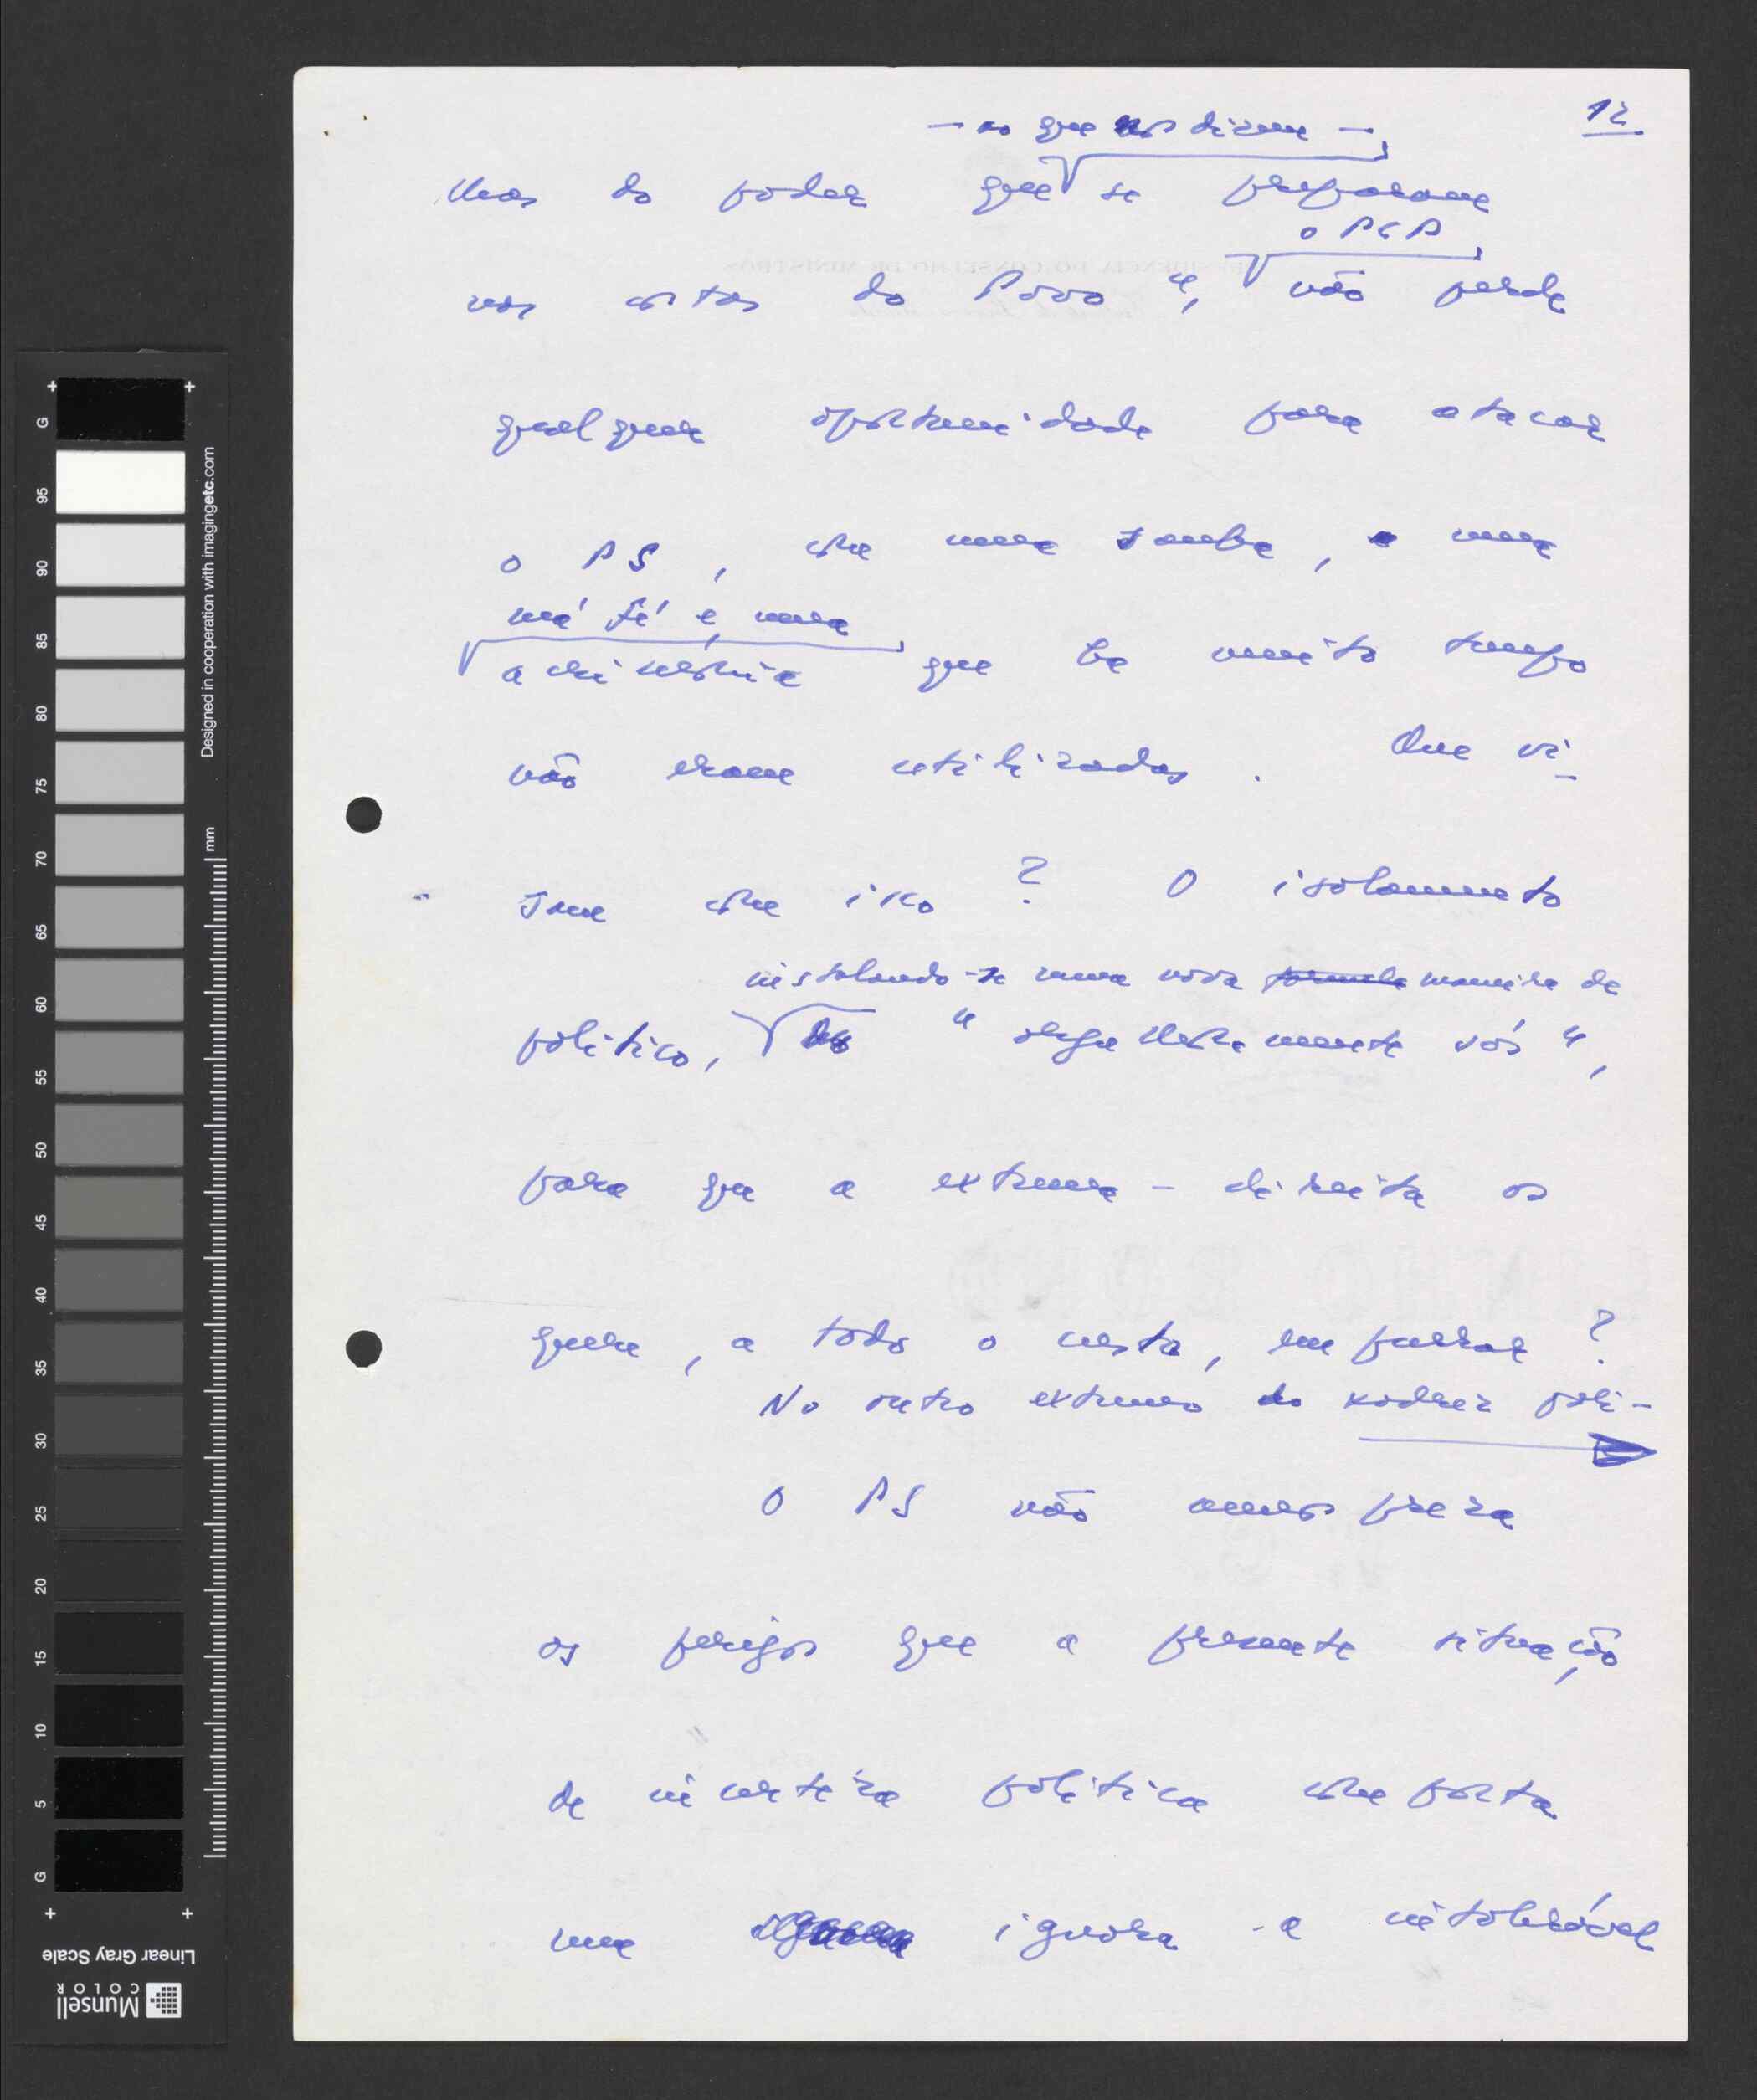 12
— ao que nos dizem —
do poder que se preparam
o PCP
nas costas do Povo", não perde
qualquer oportunidade para atacar
o PS, com uma sanha, uma
má fé e uma
que há muito tempo
não eram utilizadas. Que vi-
sam com isso? O isolamento
instalando-se numa nova formula maneira de
político, do "orgulhosamente sós",
para que a extrema-direita os
quer, a todo o custo, empurrar?
No outro extremo do xadrez polí-
O PS não menospreza
os perigos que a presente situação
de incerteza política comporta
nem ignora a intolerável
Designed in cooperation with imagingetc.com
mm
G 95 90 85 80 75 70 65 60 55 50 45 40 35 30 25 20 15 10 5 G
Linear Gray Scale
Munsell
COLOR